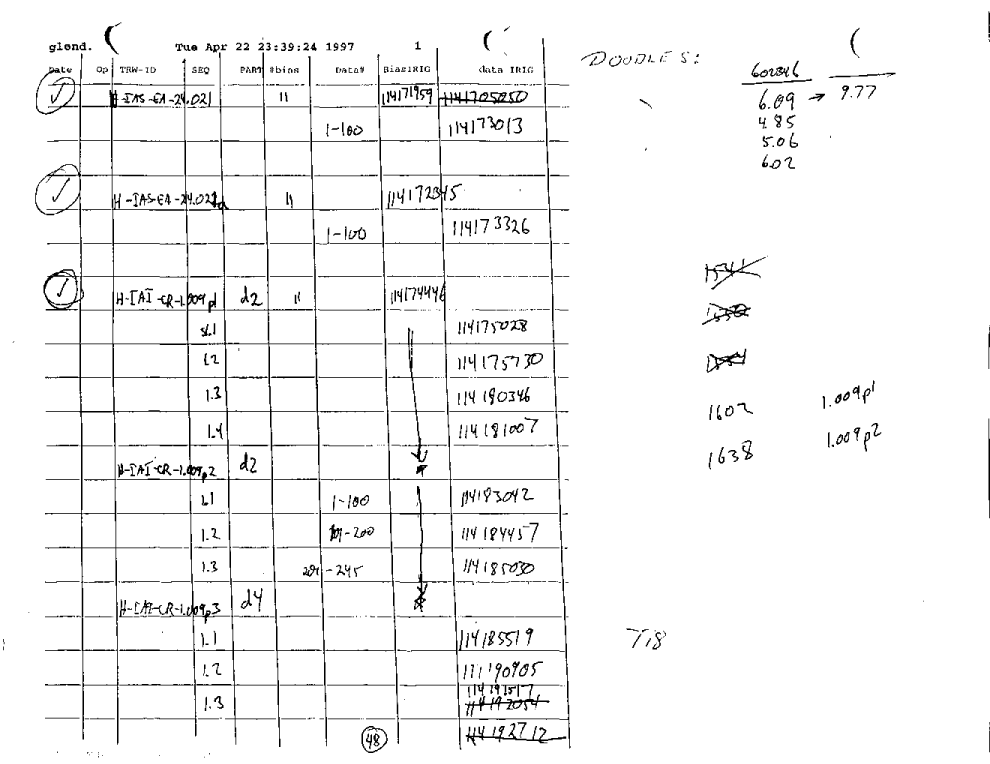 glend. Tue Apr 22 23:39:24 1997 1
Date Op TRW-ID SEQ PART #bins Data# BiasIRIG data IRIG
✓ H-IAS-EA-24.021 11 114171959 114705050
1-100 114173013
✓ H-IAS-EA-24.021a 11 114172345
1-100 114173326
✓ H-IAI-CR-1.009p1 d2 11 114174446
1.1 114175028
1.2 114175730
1.3 114180346
1.4 114181007
H-IAI-CR-1.009p2 d2
1.1 1-100 114183042
1.2 101-200 114184457
1.3 201-245 114185030
H-IAI-CR-1.009p3 d4
1.1 114185519
1.2 111190905
1.3 114191517
114192054
114192712
48
DOODLES:
602846
6.09 → 9.77
4.85
5.06
6.02
1541
1602 1.009p1
1638 1.009p2
T18